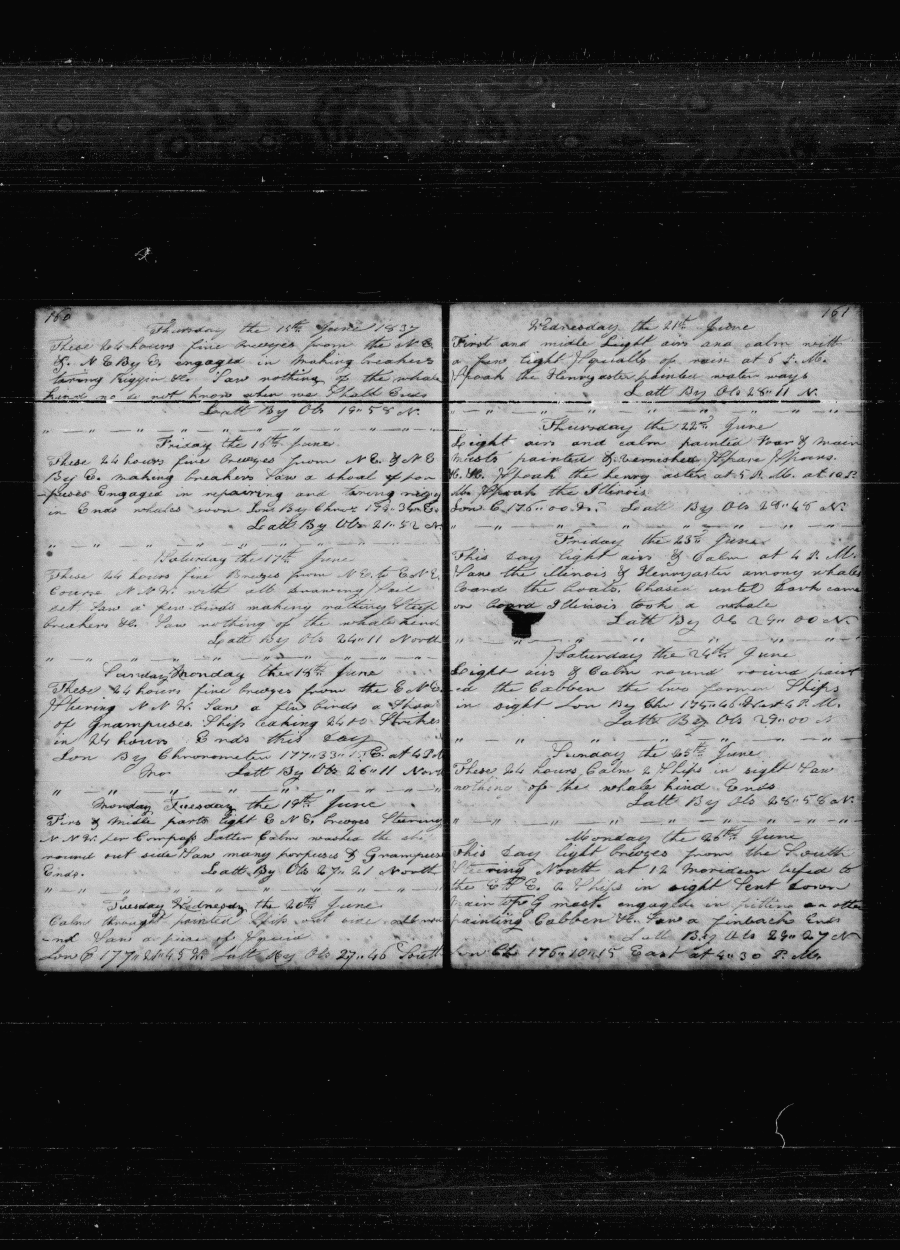 160
Thursday the 15th June 1837
These 24 hours fine breezes from the N E
& N E By E. engaged in making breakers
taring Riggin &c. Saw nothing of the whale
kind no do not know when we Shall Ends
Latt By Obs 19 " 58 N.
Friday the 16th June
These 24 hours fine breezes from N E. & N E
By E. making breakers Saw a shoal of por
poises Engaged in repairing and taring
in Ends whales soon Lon By Chro
Latt By Obs 21 " 52 N
Saturday the 17th June
These 24 hours fine Breezes from N E. to E N E.
Course N. N. W. with all drawing Sail
set Saw a few birds making
breakers &c. Saw nothing of the whale kind
Latt By Obs 24 " 11 North
Sunday Monday the 18th June
These 24 hours fine breezes from the E N E
Stering N. N. W. Saw a few birds a Shoal
of Grampuses. Ship leaking 2400 Strokes
in 24 hours Ends this day
Lon By Chronometer 177 " 33 " 15 E. at 4 P M
Latt By Obs 26 " 11 North
Monday Tuesday the 19th June
Firs & Midle parts light E N E. breezes Stering
N N W. per Compass Latter Calm washed the ship
round out side Saw many porpuses & Grampuses
Ends. Latt By Obs 27 " 21 North
Tuesday Wednesdy the 20th June
Calm through painted Ship out side
and Saw a peace of Squid
Lon C 177 " 21 " 45 Latt By Obs 27 " 46 South
161
Wednesday the 21th June
First and midle Light airs and calm with
a few light Squalls of rain at 5 P. M.
Spoak the Henryaster painted water ways
Latt By Obs 28 " 11 N.
Thursday the 22th June
Light airs and calm painted Fore & main
masts painted & vernished Spare Spears
&c. &c. Spoak the henry aster at 5 P. M. at 10 P.
M. Spoak the Illinois
Lon C 176 " 00 Latt By Obs 28 " 48 N.
Friday the 23th June
This day light airs & Calm at 4 P. M.
Saw the Illinois & Henryaster among whales
Loard the boats. Chased until dark came
on board Illinois took a whale
Latt By Ob 29 " 00 N
Saturday the 24th June
Light airs & Calm round round paint
ed the Cabben the two former Ships
in sight Lon By Chr 175 " 46 East 4 P. M.
Latt By Obs 29 " 00 N
Sunday the 25th June
These 24 hours Calm 2 Ships in sight Saw
nothing of the whale kind Ends
Latt By Obs 28 " 58 N.
Monday the 26th June
This day light breezes from the South
Steering North at 12 meridean
the 2 Ships in sight Sent down
main mast engaged in fitting an other
painting Cabben &c. Saw a finback Ends
Latt By Obs 29 " 27 N
Lon Ch 176 " 10 " 15 East at 4 " 30 P. M.